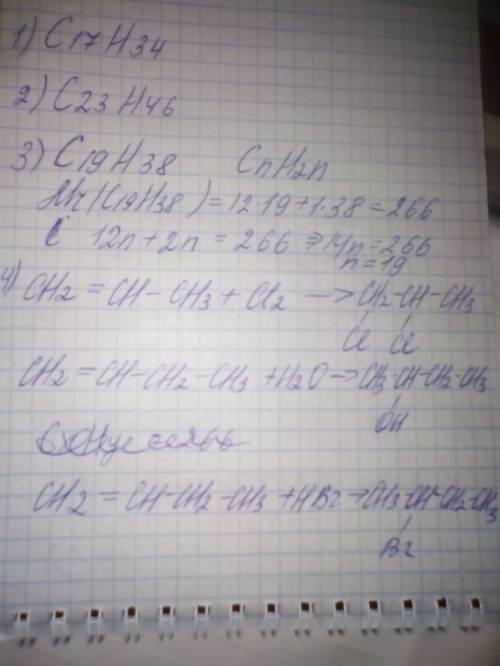 1) C17H34
2) C23H46
3) C19H38 CnH2n
Mr(C19H38) = 12·19+1·38=266
12n+2n = 266 => 14n=266
n=19
4) CH2=CH-CH3+Cl2 -> CH2-CH-CH3
Cl Cl
CH2=CH-CH2-CH3 +H2O-> CH3-CH-CH2-CH3
OH
CH2=CH-CH2-CH3+HBr->CH3-CH-CH2-CH3
Br